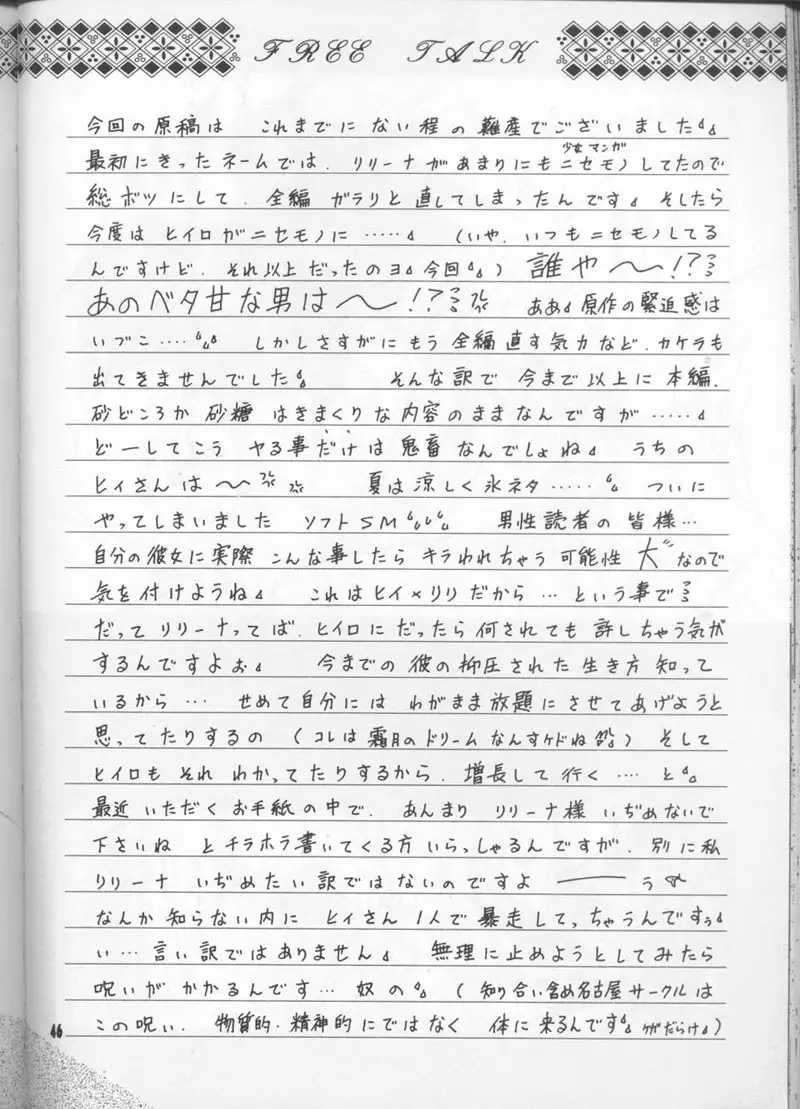 FREE TALK
今回の原稿は これまでに ない程の 難産でございました
少女マンガ
最初にきったネームでは、リリーナがあまりにもニセモノしてたので
総ボツにして、全編 ガラリと 直してしまったんです そしたら
今度は ヒイロがニセモノに …… (いや、いつもニセモノしてる
んですけど、それ以上だったのヨ 今回) 誰や〜!?
あのベタ甘な男は〜!? ああ 原作の緊迫感は
いづこ…… しかしさすがにもう 全編直す気力など、カケラも
出てきませんでした そんな訳で 今まで以上に 本編、
砂どころか 砂糖 はきまくりな内容のままなんですが ……
どーしてこう ヤる事だけは 鬼畜 なんでしょね うちの
ヒイさんは〜 夏は涼しく氷ネタ …… ついに
やってしまいました ソフトSM 男性読者の 皆様…
自分の彼女に実際 こんな事したら キラわれちゃう 可能性 大 なので
気を付けようね これはヒイ×リリだから … という事で
だって リリーナってば、ヒイロにだったら何されても 許しちゃう気が
するんですよぉ 今までの 彼の抑圧された 生き方 知って
いるから … せめて自分には わがまま放題に させてあげようと
思ってたりするの (コレは 霜月のドリーム なんすケドね) そして
ヒイロも それ わかってたりするから、増長して 行く …… と
最近 いただく お手紙の中で、 あんまり リリーナ様 いぢめないで
下さいね とチラホラ書いてくる方 いらっしゃるんですが、別に私
リリーナ いぢめたい訳ではないのですよ ── う
なんか 知らない内に ヒイさん 1人で 暴走してっちゃうんですぅ
い… 言い訳ではありません 無理に止めようとしてみたら
呪いが かかるんです… 奴の (知り合い含め名古屋サークルは
この呪い、 物質的・精神的にではなく 体に来るんです ケガだらけ)
46